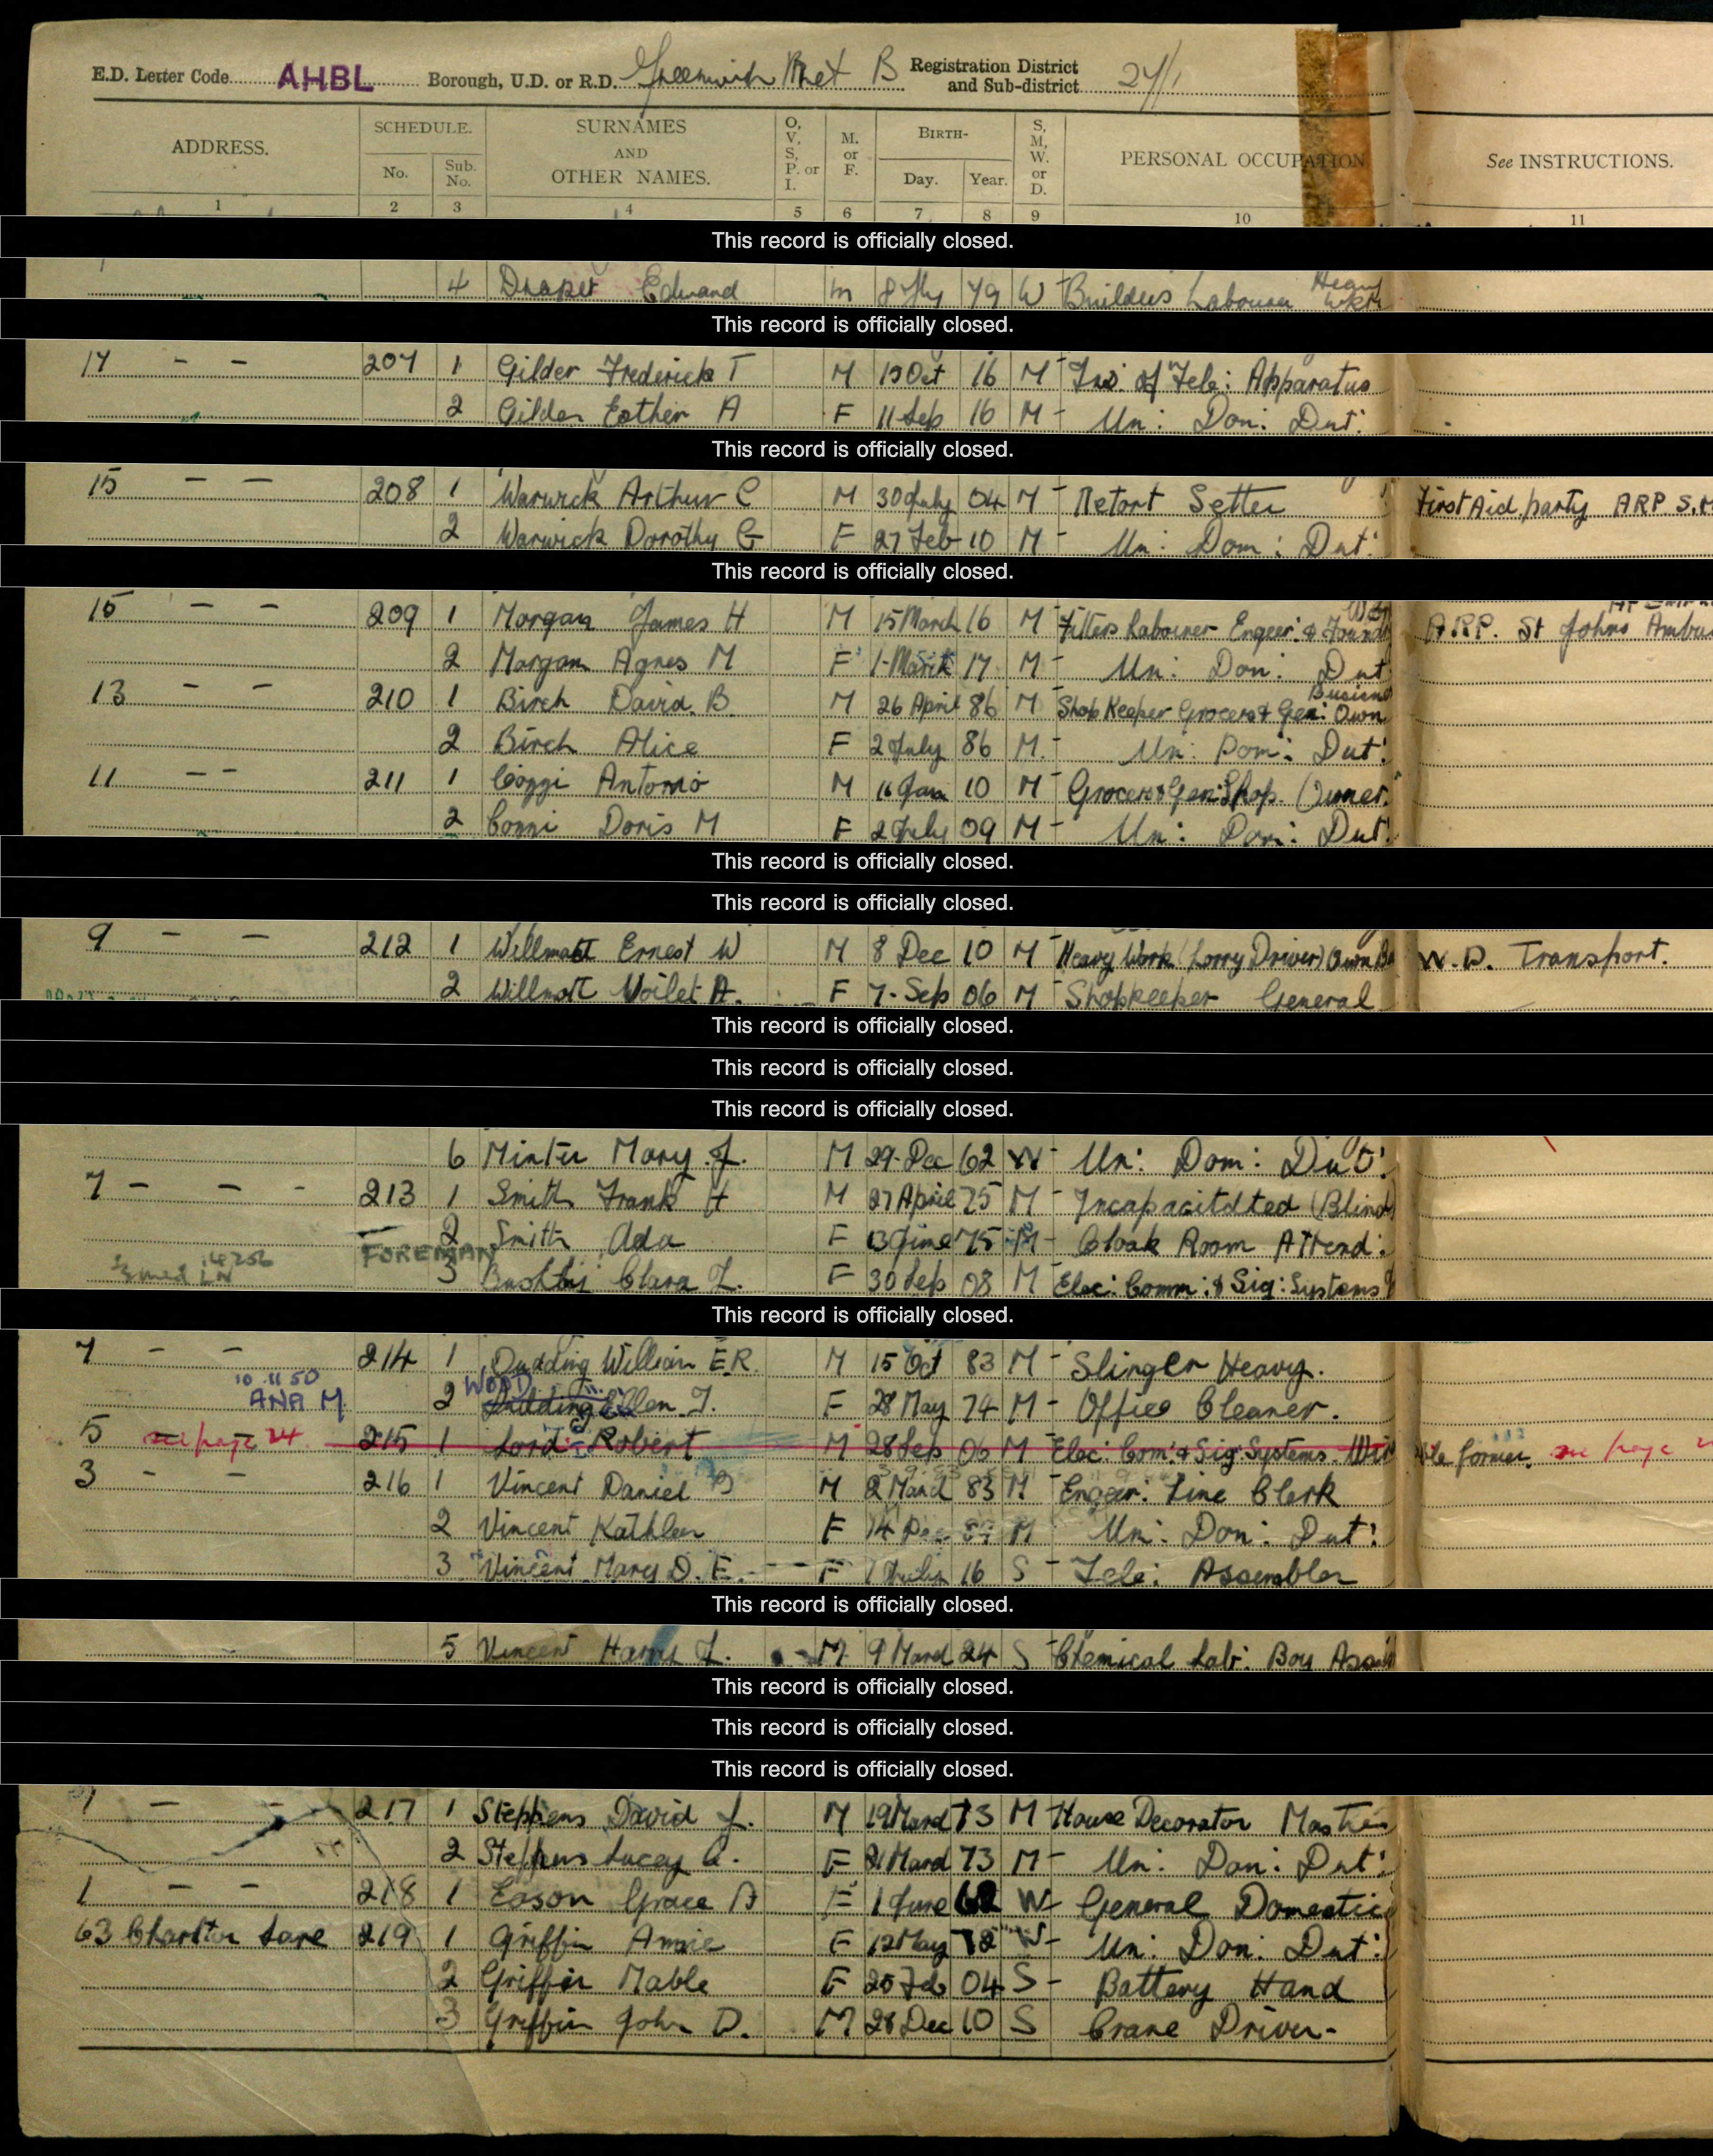 E.D. Letter Code AHBL Borough, U.D. or R.D. Greenwich Met B Registration District and Sub-district 27/1
ADDRESS. SCHEDULE. No. Sub. No. SURNAMES AND OTHER NAMES. O, V, S, P. or I. M. or F. BIRTH- Day. Year. S, M, W. or D. PERSONAL OCCUPATION See INSTRUCTIONS.
1 2 3 4 5 6 7 8 9 10 11
This record is officially closed.
4 Draper Edward M 79 W Builders Labourer Heavy
This record is officially closed.
17 - - 207 1 Gilder Frederick T M 13 Oct 16 M Ins: of Tele: Apparatus
2 Gilder Esther A F 11 Sep 16 M Un: Dom: Dut:
This record is officially closed.
15 - - 208 1 Warwick Arthur C M 30 July 04 M Retort Setter First Aid party ARP
2 Warwick Dorothy G F 27 Feb 10 M Un: Dom: Dut:
This record is officially closed.
15 - - 209 1 Morgan James H M 15 March 16 M Fitters Labourer Engeer: & ARP. St Johns
2 Morgan Agnes M F 1 March 17 M Un: Dom: Dut
13 - - 210 1 Birch David. B. M 26 April 86 M Shop Keeper Grocers & Gen: Own
2 Birch Alice F 2 July 86 M. Un: Dom: Dut:
11 - - 211 1 Cozzi Antonio M 16 Jan 10 M Grocers & Gen: Shop. (Owner.
2 Cozzi Doris M F 2 July 09 M Un: Dom: Dut:
This record is officially closed.
This record is officially closed.
9 - - 212 1 Willmott Ernest W M 8 Dec 10 M Heavy Work (Lorry Driver) Own W.D. Transport.
2 Willmott Voilet A. F 7 Sep 06 M Shopkeeper General
This record is officially closed.
This record is officially closed.
This record is officially closed.
6 Minter Mary J. M 29 Dec 62 W Un: Dom: Dut:
7 - - - 213 1 Smith Frank H M 27 April 75 M Incapacitdted (Blind)
2 Smith Ada F 13 June 75 M Cloak Room Attend:
FOREMAN
3 Bushby Clara L. F 30 Sep 08 M Elec: Comm: & Sig: Systems
This record is officially closed.
7 - - 214 1 Dudding William E.R. M 15 Oct 83 M Slinger Heavy.
10 11 50 ANA M WOOD
2 Dudding Ellen. J. F 28 May 74 M Office Cleaner.
5 see page 24 215 1 Lord Robert M 28 Sep 06 M Elec: Com: & Sig: Systems. former. see page
3 - - 216 1 Vincent Daniel M 2 March 83 M Engeer: Time Clerk
2 Vincent Kathleen F 14 Dec M Un: Dom: Dut:
3 Vincent Mary D. E. F 16 S Tele: Assembler
This record is officially closed.
5 Vincent Harry J. M 9 March 24 S Chemical Lab: Boy
This record is officially closed.
This record is officially closed.
This record is officially closed.
1 - - 217 1 Stephens David J. M 19 March 73 M House Decorator Master
2 Stephens Lucey a. F 21 March 73 M Un: Dom: Dut:
1 - - 218 1 Eason Grace A F 1 June 62 W General Domestic
63 Charlton Lane 219 1 Griffin Annie F 12 May 78 W Un: Dom: Dut:
2 Griffin Mable F 25 Feb 04 S Battery Hand
3 Griffin John D. M 28 Dec 10 S Crane Driver